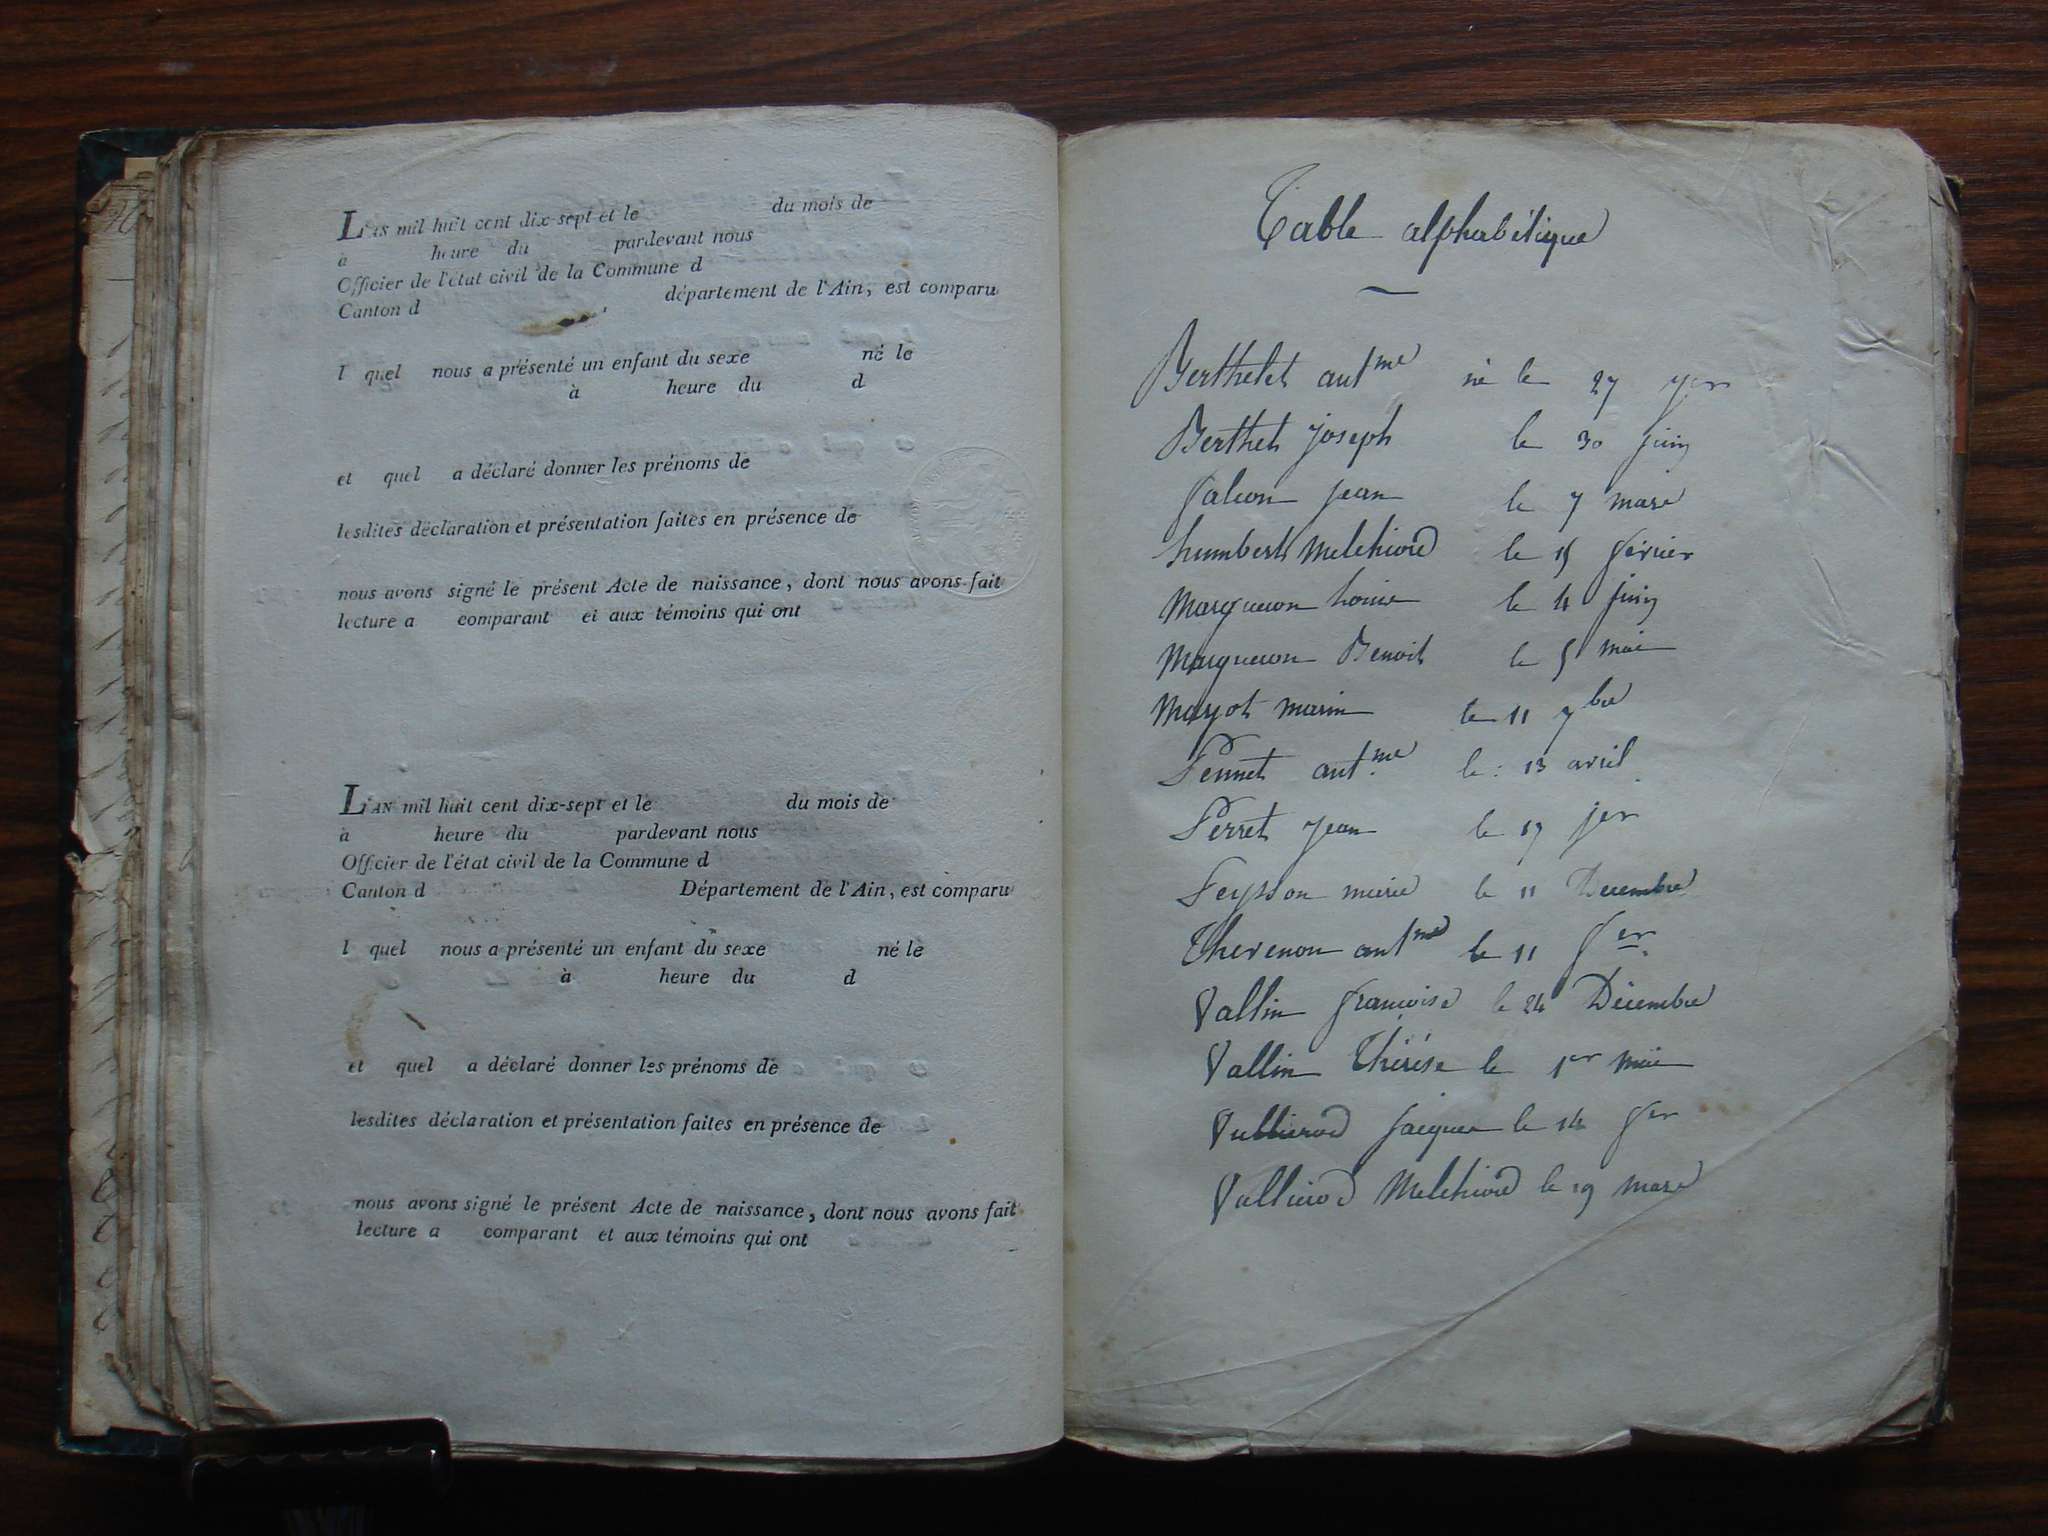 L'AN mil huit cent dix-sept et le du mois de
à heure du pardevant nous
Officier de l'état civil de la Commune d
Canton d département de l'Ain, est comparu
l quel nous a présenté un enfant du sexe né le
à heure du d
et quel a déclaré donner les prénoms de
lesdites déclaration et présentation faites en présence de
nous avons signé le présent Acte de naissance, dont nous avons fait
lecture a comparant et aux témoins qui ont
L'AN mil huit cent dix-sept et le du mois de
à heure du pardevant nous
Officier de l'état civil de la Commune d
Canton d Département de l'Ain, est comparu
l quel nous a présenté un enfant du sexe né le
à heure du d
et quel a déclaré donner les prénoms de
lesdites déclaration et présentation faites en présence de
nous avons signé le présent Acte de naissance, dont nous avons fait
lecture a comparant et aux témoins qui ont
Table alphabétique
Berthelet antme né le 27
Berthet Joseph le 30 juin
falcon jean le 7 mars
humbert Melchiord le 15 février
Margueron Louise le 4 juin
Margueron Benoit le 5 mai
Mayot marin le 11 7bre
Pennet antme le 13 avril
Perret jean le 17 jer
Peysson marie le 11 Decembre
Thevenon antme le 11 fer
Vallin francoise le 24 Décembre
Vallin Thérése le 1er mai
Vullierod jacques le 14 fer
Vallierod Melchiord le 19 mars